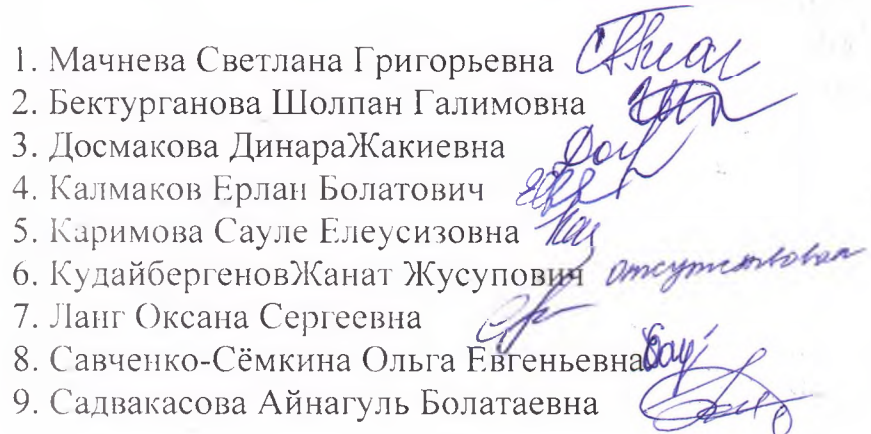 1. Мачнева Светлана Григорьевна
2. Бектурганова Шолпан Галимовна
3. Досмакова ДинараЖакиевна
4. Калмаков Ерлан Болатович
5. Каримова Сауле Елеусизовна
6. КудайбергеновЖанат Жусупович отсутствовал
7. Ланг Оксана Сергеевна
8. Савченко-Сёмкина Ольга Евгеньевна
9. Садвакасова Айнагуль Болатаевна